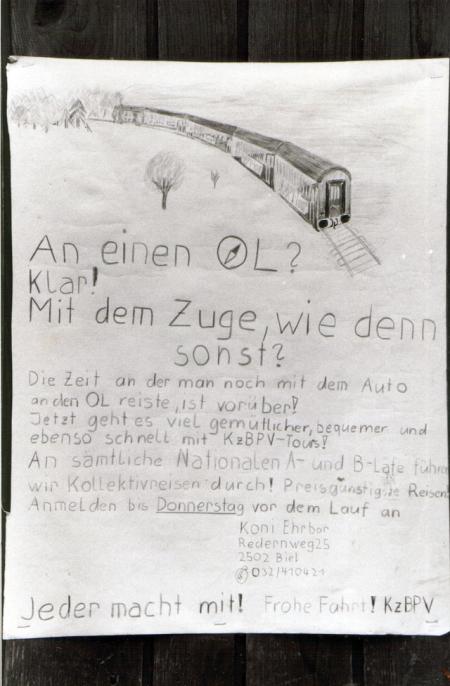 An einen OL?
Klar!
Mit dem Zuge, wie denn
sonst?
Die Zeit an der man noch mit dem Auto
an den OL reiste, ist vorüber!
Jetzt geht es viel gemütlicher, bequemer und
ebenso schnell mit KzBPV-Tours!
An sämtliche Nationalen A- und B-Läufe führen
wir Kollektivreisen durch! Preisgünstigste Reisen!
Anmelden bis Donnerstag vor dem Lauf an
Koni Ehrbar
Redernweg 25
2502 Biel
032/410421
Jeder macht mit! Frohe Fahrt! KzBPV